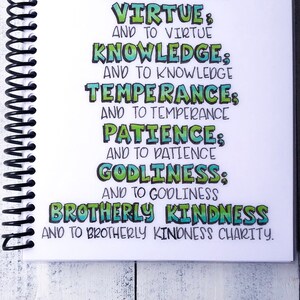 VIRTUE;
AND TO VIRTUE
KNOWLEDGE;
AND TO KNOWLEDGE
TEMPERANCE;
AND TO TEMPERANCE
PATIENCE;
AND TO PATIENCE
GODLINESS;
AND TO GODLINESS
BROTHERLY KINDNESS
AND TO BROTHERLY KINDNESS CHARITY.